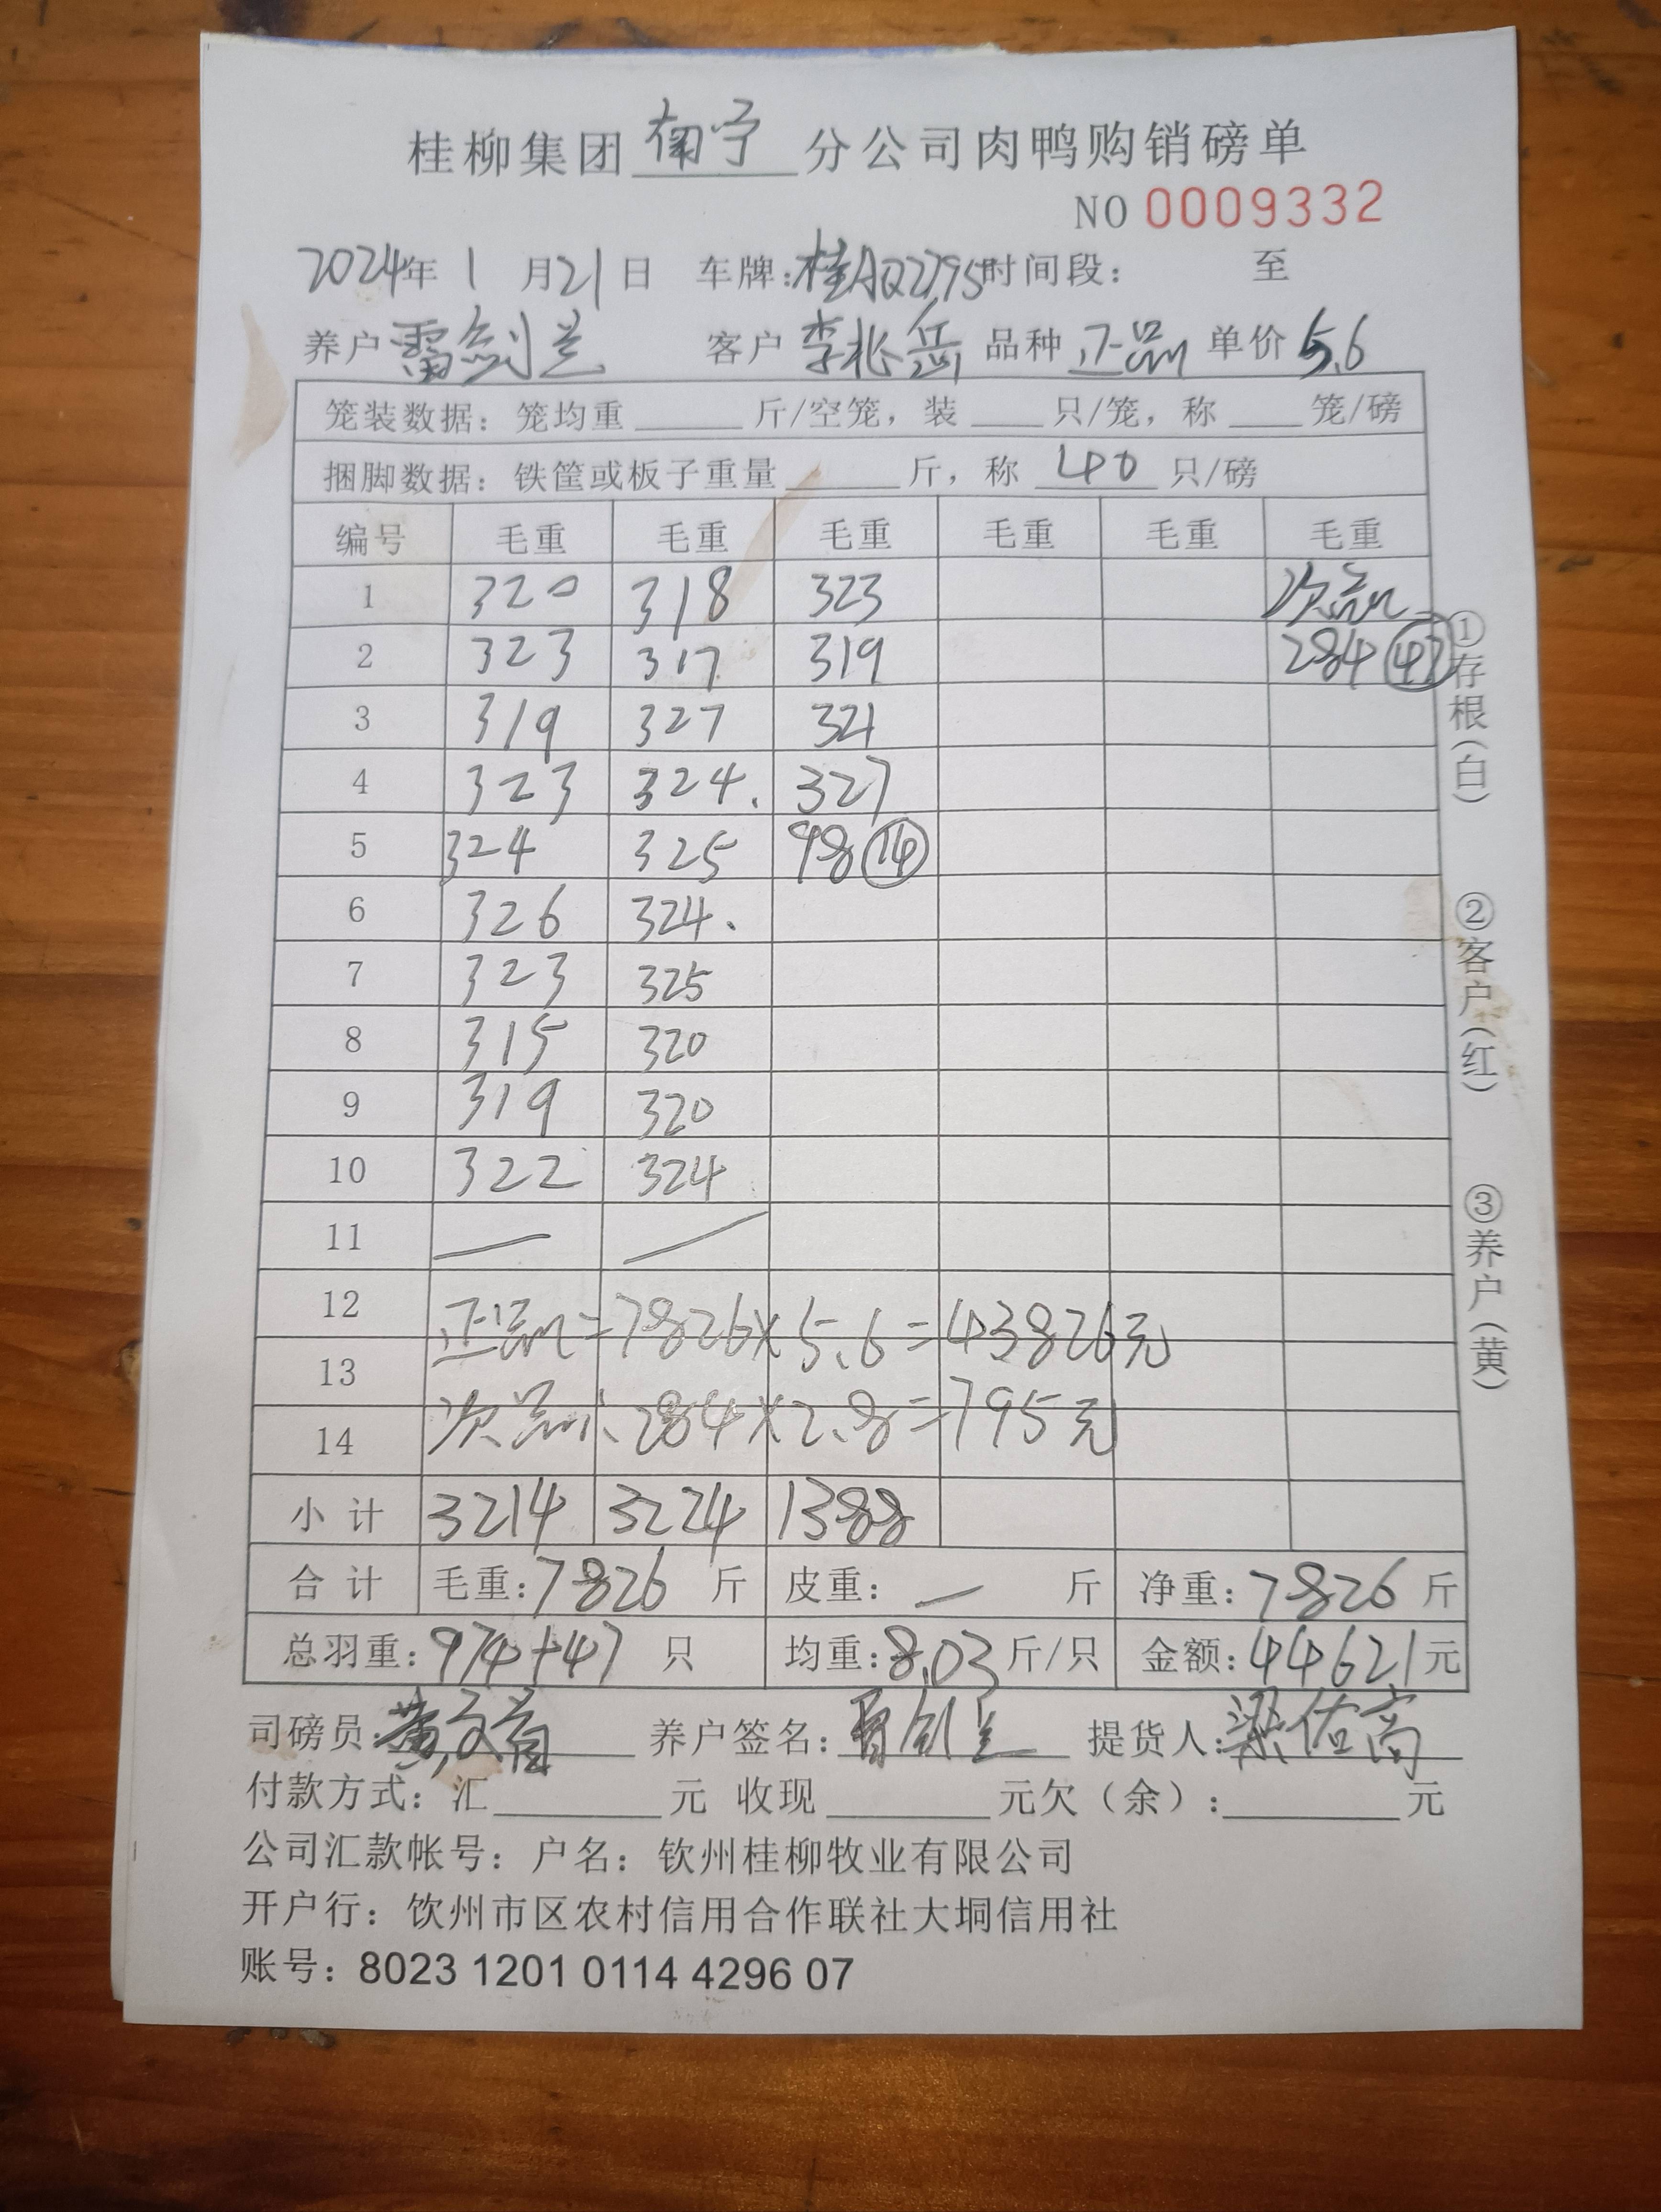 桂柳集团南宁分公司肉鸭购销磅单
NO 0009332
2024年 1 月21日 车牌:桂AQ2795时间段: 至
养户雷剑兰 客户 李兆岳 品种 正品 单价 5.6
笼装数据: 笼均重 斤/空笼, 装 只/笼, 称 笼/磅
捆脚数据: 铁筐或板子重量 斤, 称 40 只/磅
编号 毛重 毛重 毛重 毛重 毛重 毛重
1 320 318 323 次品
2 323 317 319 284 47
3 319 327 321
4 323 324. 327
5 324 325 98 14
6 326 324.
7 323 325
8 315 320
9 319 320
10 322 324
11 — —
12
正品=7826×5.6=43826元
13
14
次品:284×2.8=795元
小计 3214 3224 1388
合计 毛重:7826 斤 皮重: — 斤 净重:7826 斤
总羽重:974+47 只 均重:8.03斤/只 金额:44621元
司磅员:黄 养户签名: 提货人:梁佑高
付款方式: 汇 元 收现 元欠(余): 元
公司汇款帐号: 户名: 钦州桂柳牧业有限公司
开户行: 饮州市区农村信用合作联社大垌信用社
账号: 8023 1201 0114 4296 07
①存根(白) ②客户(红) ③养户(黄)